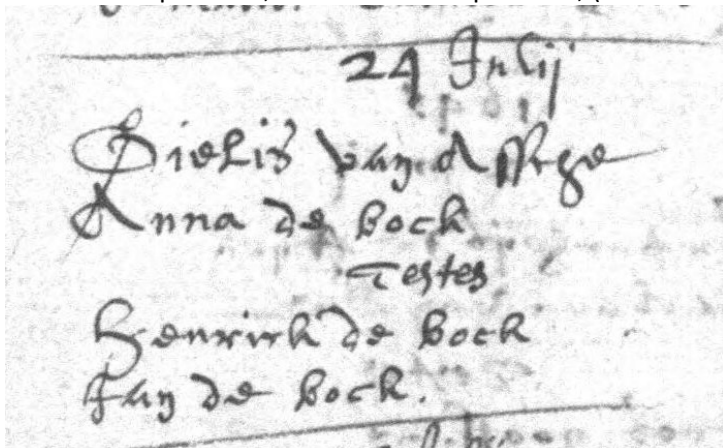 24 Julij
Gielis van Assche
Anna de bock
Testes
Henrick de bock
Jan de bock.